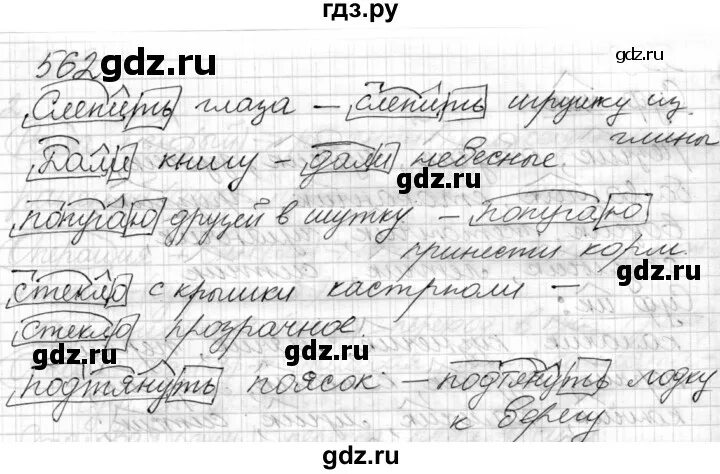 гдз.ру
562 gdz.ru gdz.ru
Слепить глаза – слепить игрушку из
gdz.ru глины
Дали книгу – дали небесные.
gdz.ru
попугаю друзей в шутку – попугаю
принести корм.
gdz.ru
стекло с крышки кастрюли –
стекло прозрачное.
gdz.ru
подтянуть поясок – подтянуть лодку
к берегу
gdz.ru